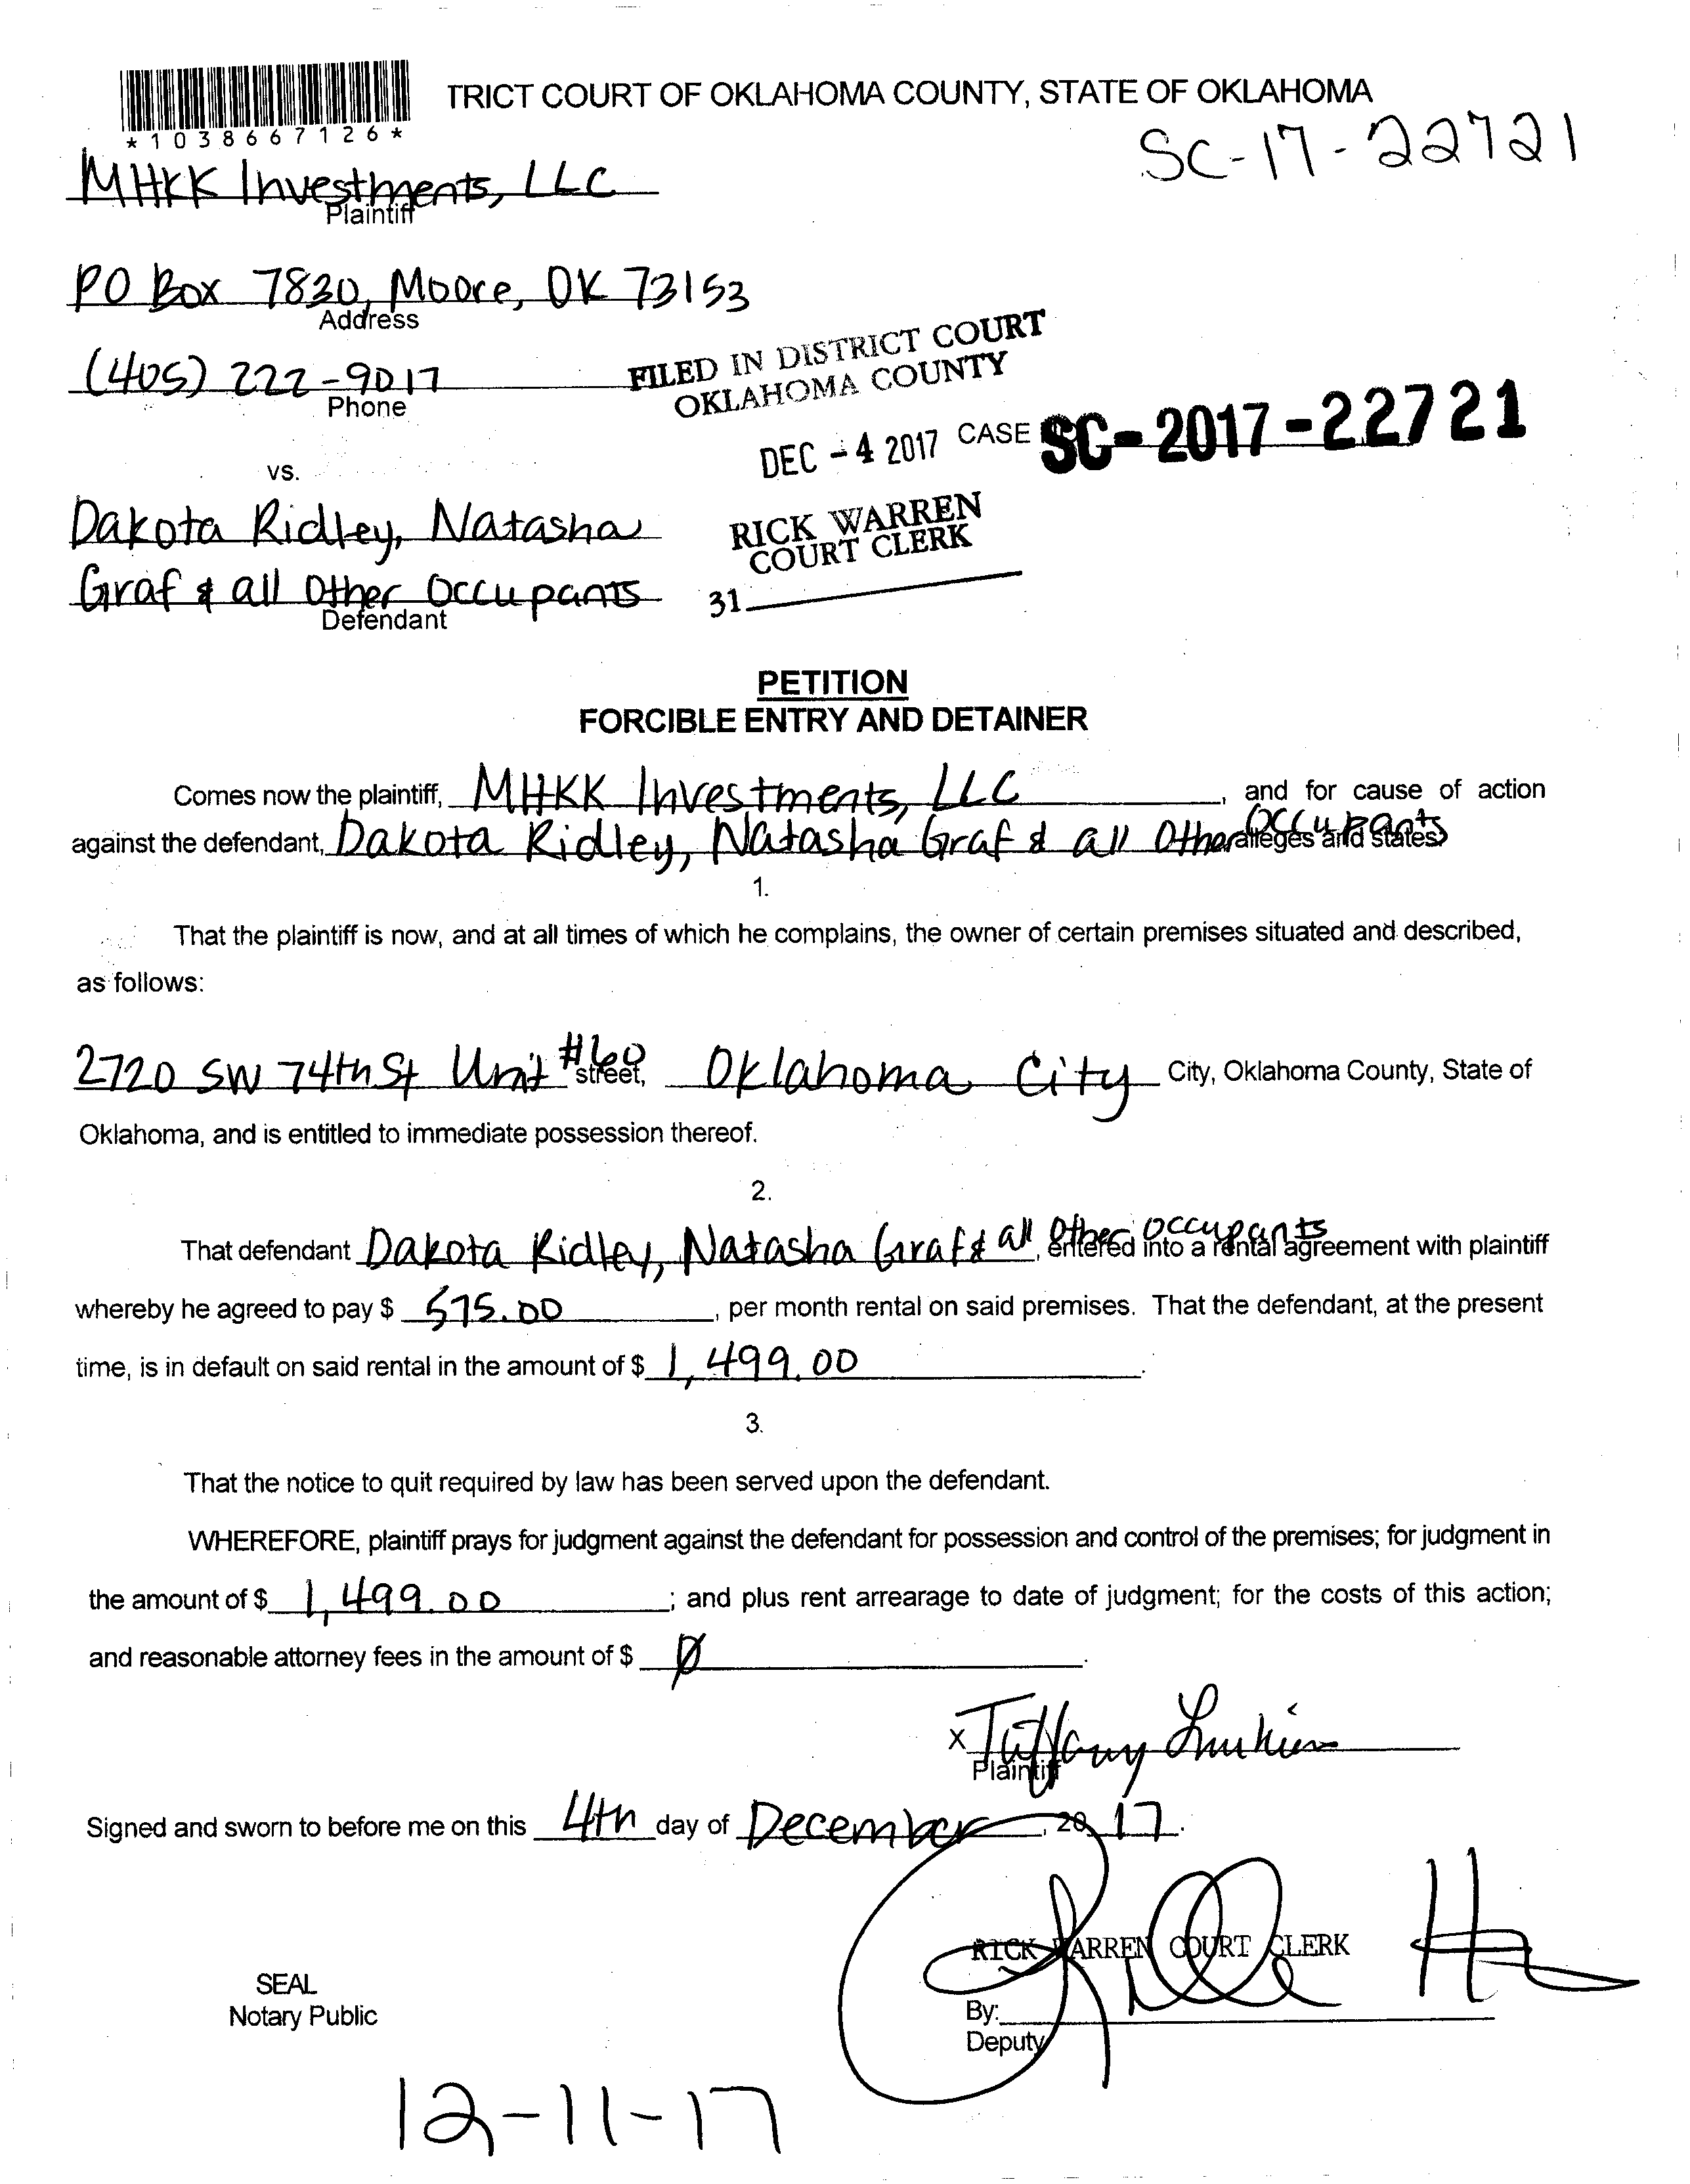 TRICT COURT OF OKLAHOMA COUNTY, STATE OF OKLAHOMA
*1038667126*
SC-17-22721
MHKK Investments, LLC
Plaintiff
PO Box 7830, Moore, OK 73153
Address
(405) 222-9017
Phone
FILED IN DISTRICT COURT
OKLAHOMA COUNTY
DEC -4 2017
CASE SC-2017-22721
vs.
RICK WARREN
COURT CLERK
31
Dakota Ridley, Natasha
Graf & all Other Occupants
Defendant
PETITION
FORCIBLE ENTRY AND DETAINER
Comes now the plaintiff, MHKK Investments, LLC, and for cause of action
against the defendant, Dakota Ridley, Natasha Graf & all Other Occupants alleges and states:
1.
That the plaintiff is now, and at all times of which he complains, the owner of certain premises situated and described,
as follows:
2720 SW 74th St Unit #60 street, Oklahoma City City, Oklahoma County, State of
Oklahoma, and is entitled to immediate possession thereof.
2.
That defendant Dakota Ridley, Natasha Graf & all other occupants, entered into a rental agreement with plaintiff
whereby he agreed to pay $ 575.00, per month rental on said premises. That the defendant, at the present
time, is in default on said rental in the amount of $ 1,499.00.
3.
That the notice to quit required by law has been served upon the defendant.
WHEREFORE, plaintiff prays for judgment against the defendant for possession and control of the premises; for judgment in
the amount of $ 1,499.00; and plus rent arrearage to date of judgment; for the costs of this action;
and reasonable attorney fees in the amount of $ Ø.
X Tiffany
Plaintiff
Signed and sworn to before me on this 4th day of December, 2017.
RICK WARREN COURT CLERK
SEAL
Notary Public
By:
Deputy
12-11-17